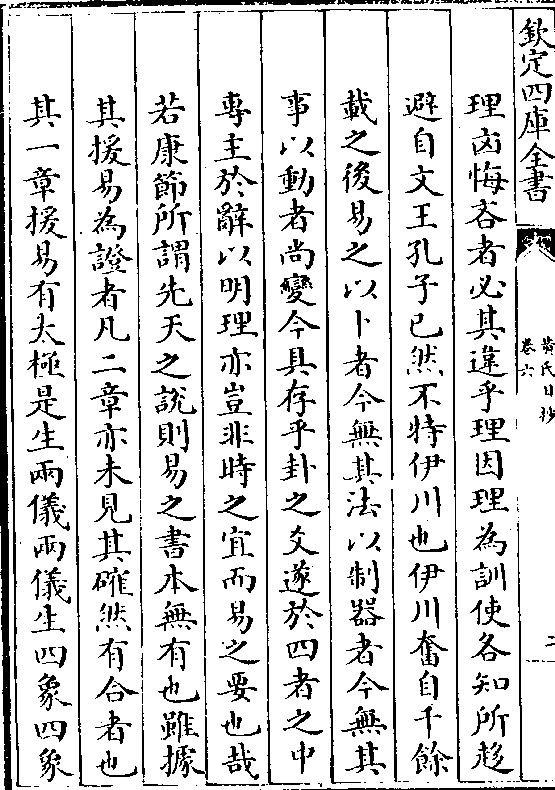 欽定四庫全書
黄氏日抄
卷六
二
理㐫悔吝者必其違乎理因理為訓使各知所趍
避自文王孔子已然不特伊川也伊川奮自千餘
載之後易之以卜者今無其法以制器者今無其
事以動者尚變今具存乎卦之爻遂於四者之中
專主於辭以明理亦豈非時之宜而易之要也哉
若康節所謂先天之說則易之書本無有也雖據
其援易為證者凡二章亦未見其確然有合者也
其一章援易有太極是生兩儀兩儀生四象四象